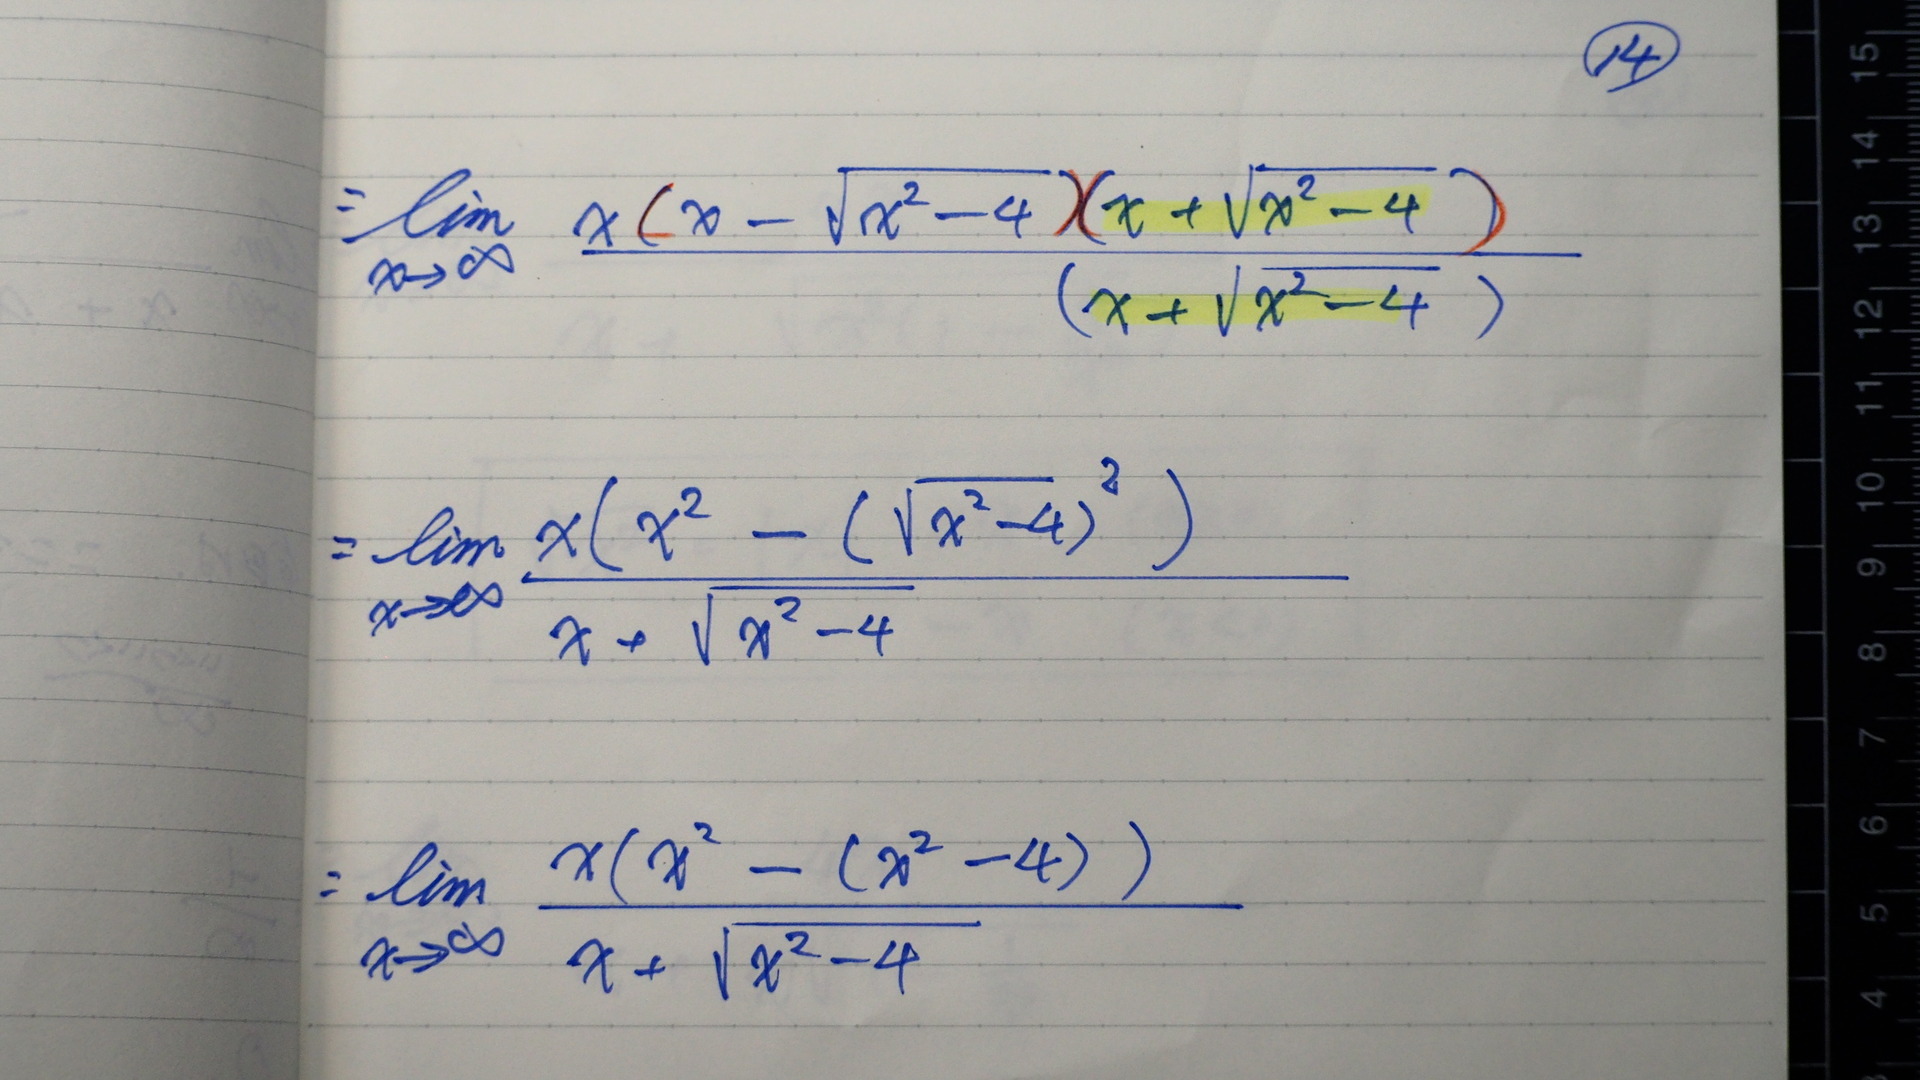 14
= lim x→∞ x(x − √(x² − 4))(x + √(x² − 4)) / (x + √(x² − 4))
= lim x→∞ x(x² − (√(x² − 4))²) / x + √(x² − 4)
= lim x→∞ x(x² − (x² − 4)) / x + √(x² − 4)
15
14
13
12
11
10
9
8
7
6
5
4